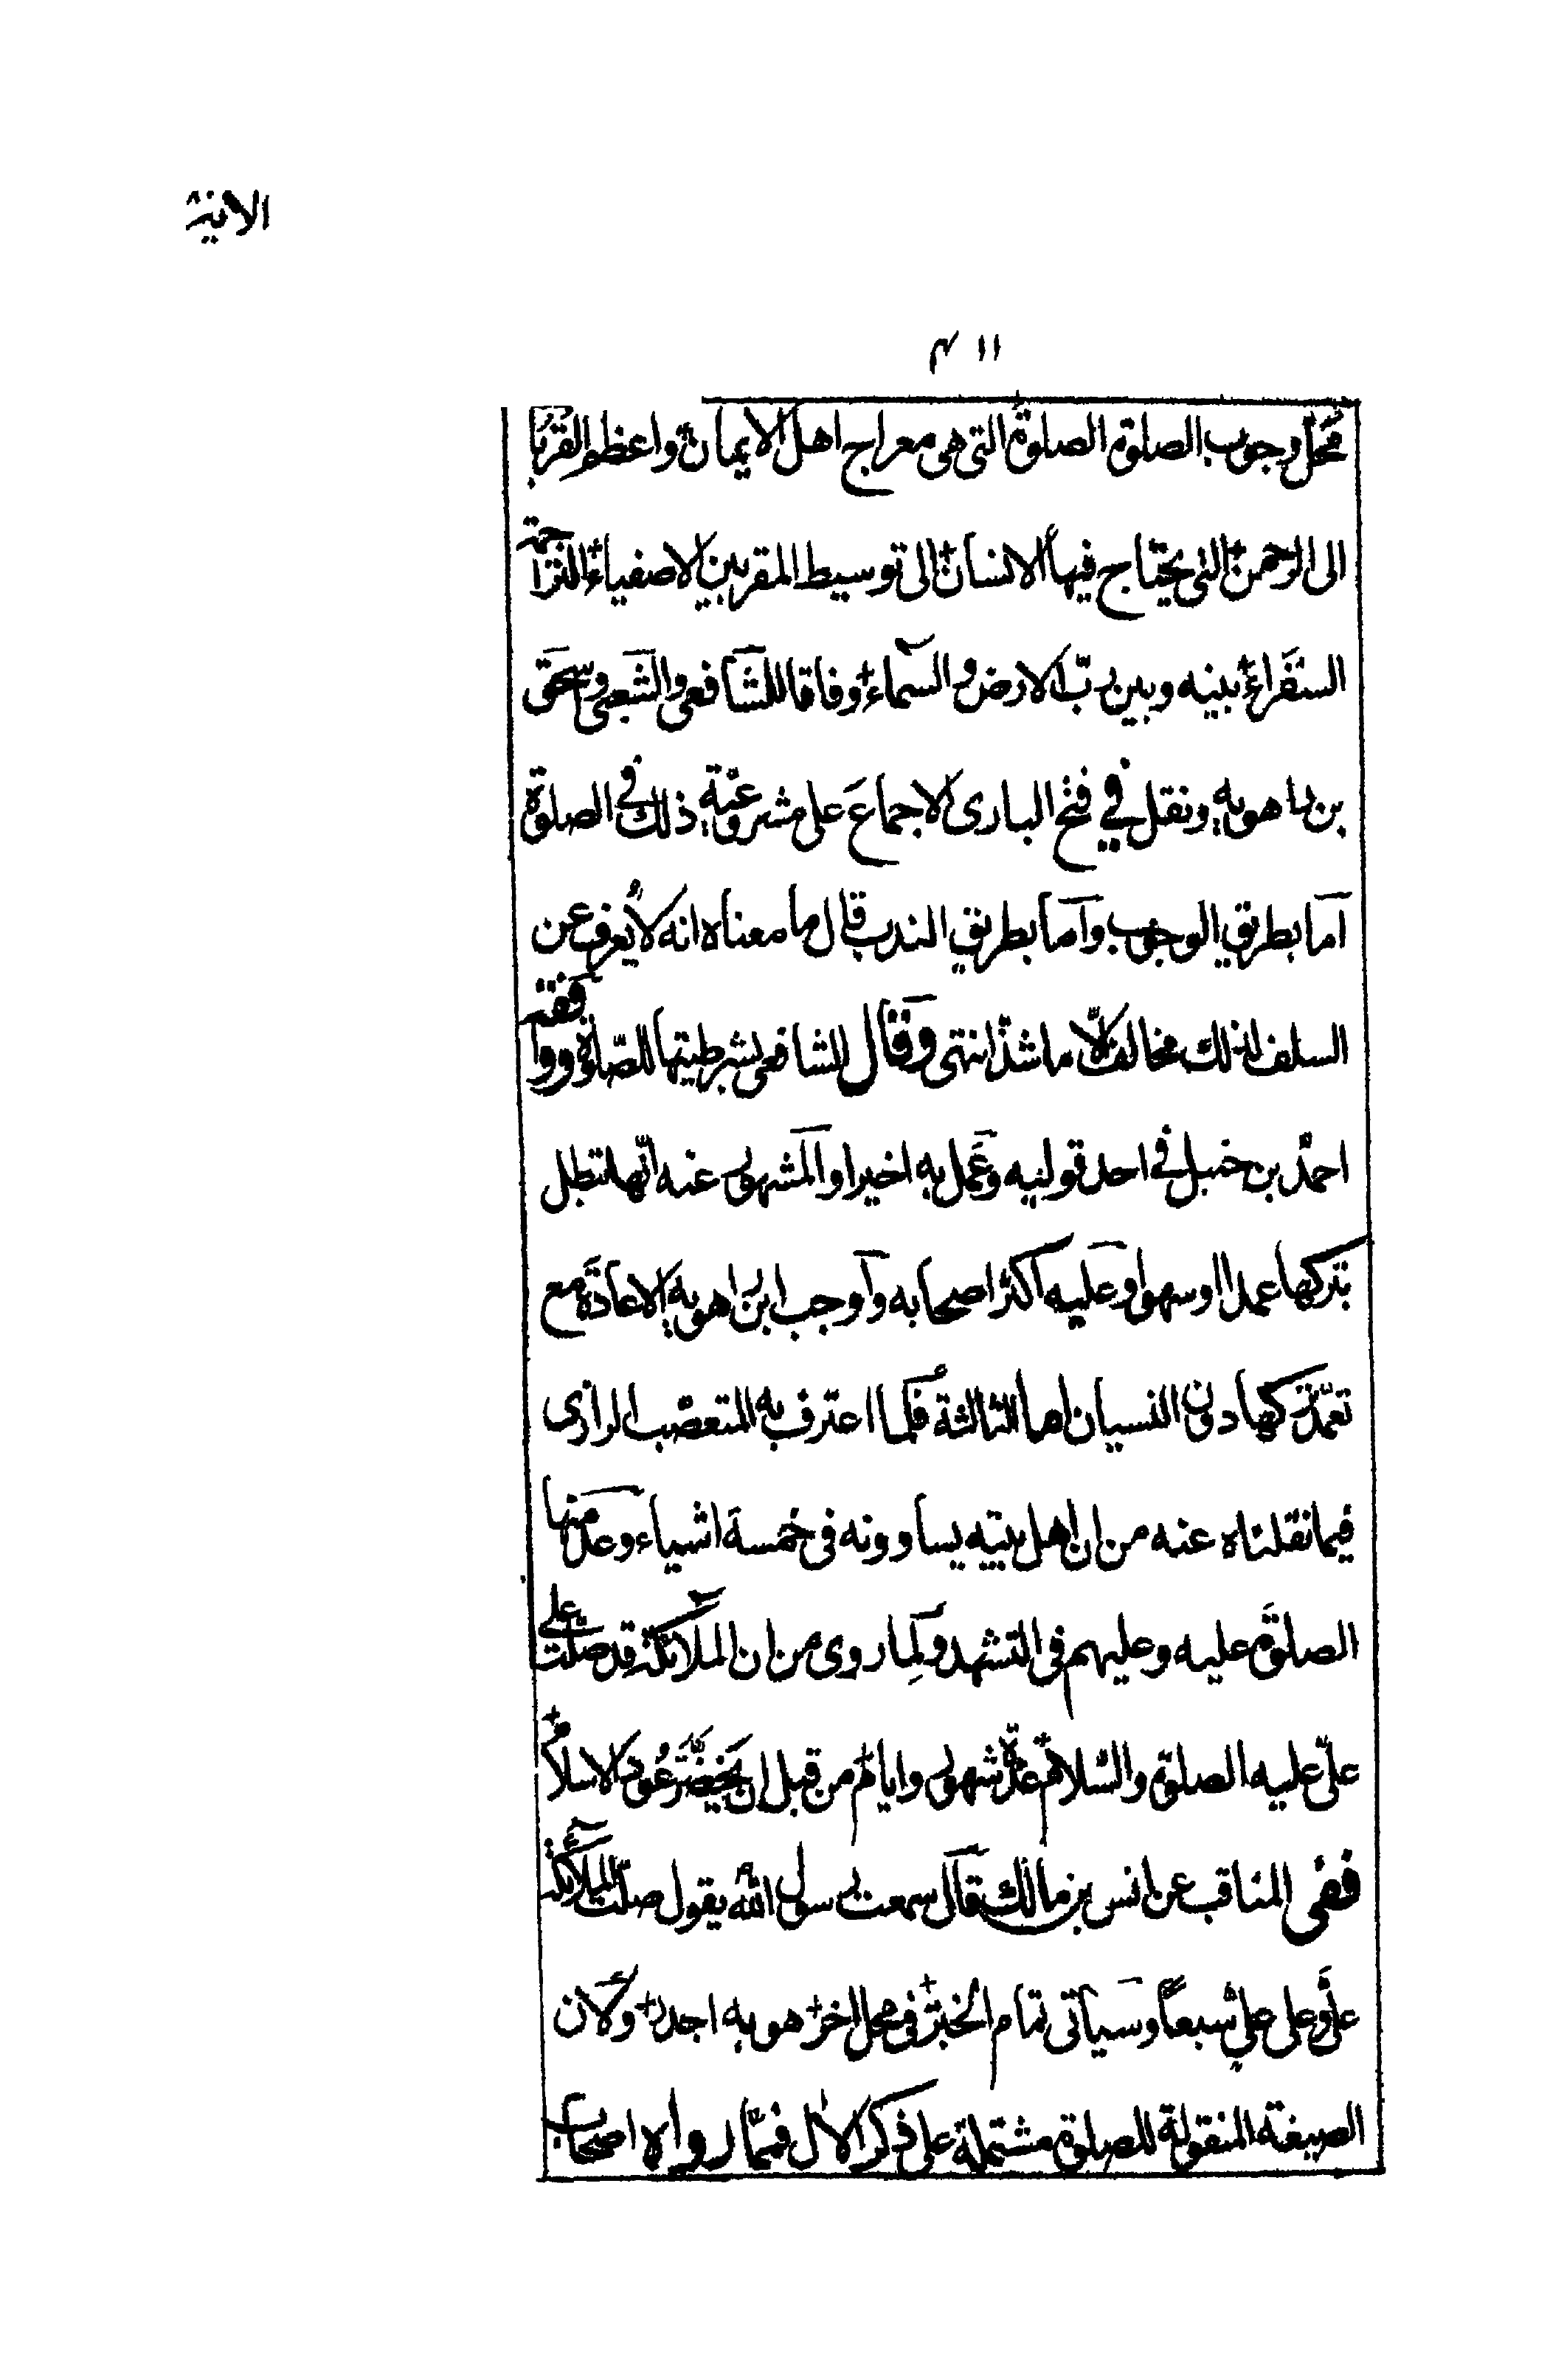 الانية
١١٣
محل وجوب الصلوة الصلوة التى هى معراج اهل الايمان واعظم القربا
الى الرحمن التى يحتاج فيها الانسان الى توسيط المقربين الاصفياء التراجمة
السفراء بينه وبين رب الارض والسماء وفاقا للشافعى والشعبى واسحق
بن راهويه ونقل في فتح البارى الاجماع على مشروعية ذلك فى الصلوة
اما بطريق الوجوب واما بطريق الندب قال ما معناه انه لا يعرف عن
السلف لذلك مخالف الا ما شذ انتهى وقال الشافعى بشرطيتها للصلوة ووافقه
احمد بن حنبل فى احد قوليه وعمل به اخيرا والمشهور عنه انها تبطل
بتركها عمدا او سهوا وعليه اكثر اصحابه واوجب ابن راهويه الاعادة مع
تعمد تركها دون النسيان اما الثالثة فلما اعترف به المتعصب الرازى
فيما نقلناه عنه من ان اهل بيته يساوونه فى خمسة اشياء وعد منها
الصلوة عليه وعليهم فى التشهد ولما روى من ان الملائكة قد صلت على
على عليه الصلوة والسلام عدة شهور وايام من قبل ان يخضر عود الاسلام
ففى المناقب عن انس بن مالك قال سمعت رسول الله يقول صلت الملائكة
على وعلى على سبعا وسيأتى تمام الخبر فى محل اخر هو به اجدر ولان
الصيغة المنقولة للصلوة مشتملة على ذكر الال فمما رواه اصحاب